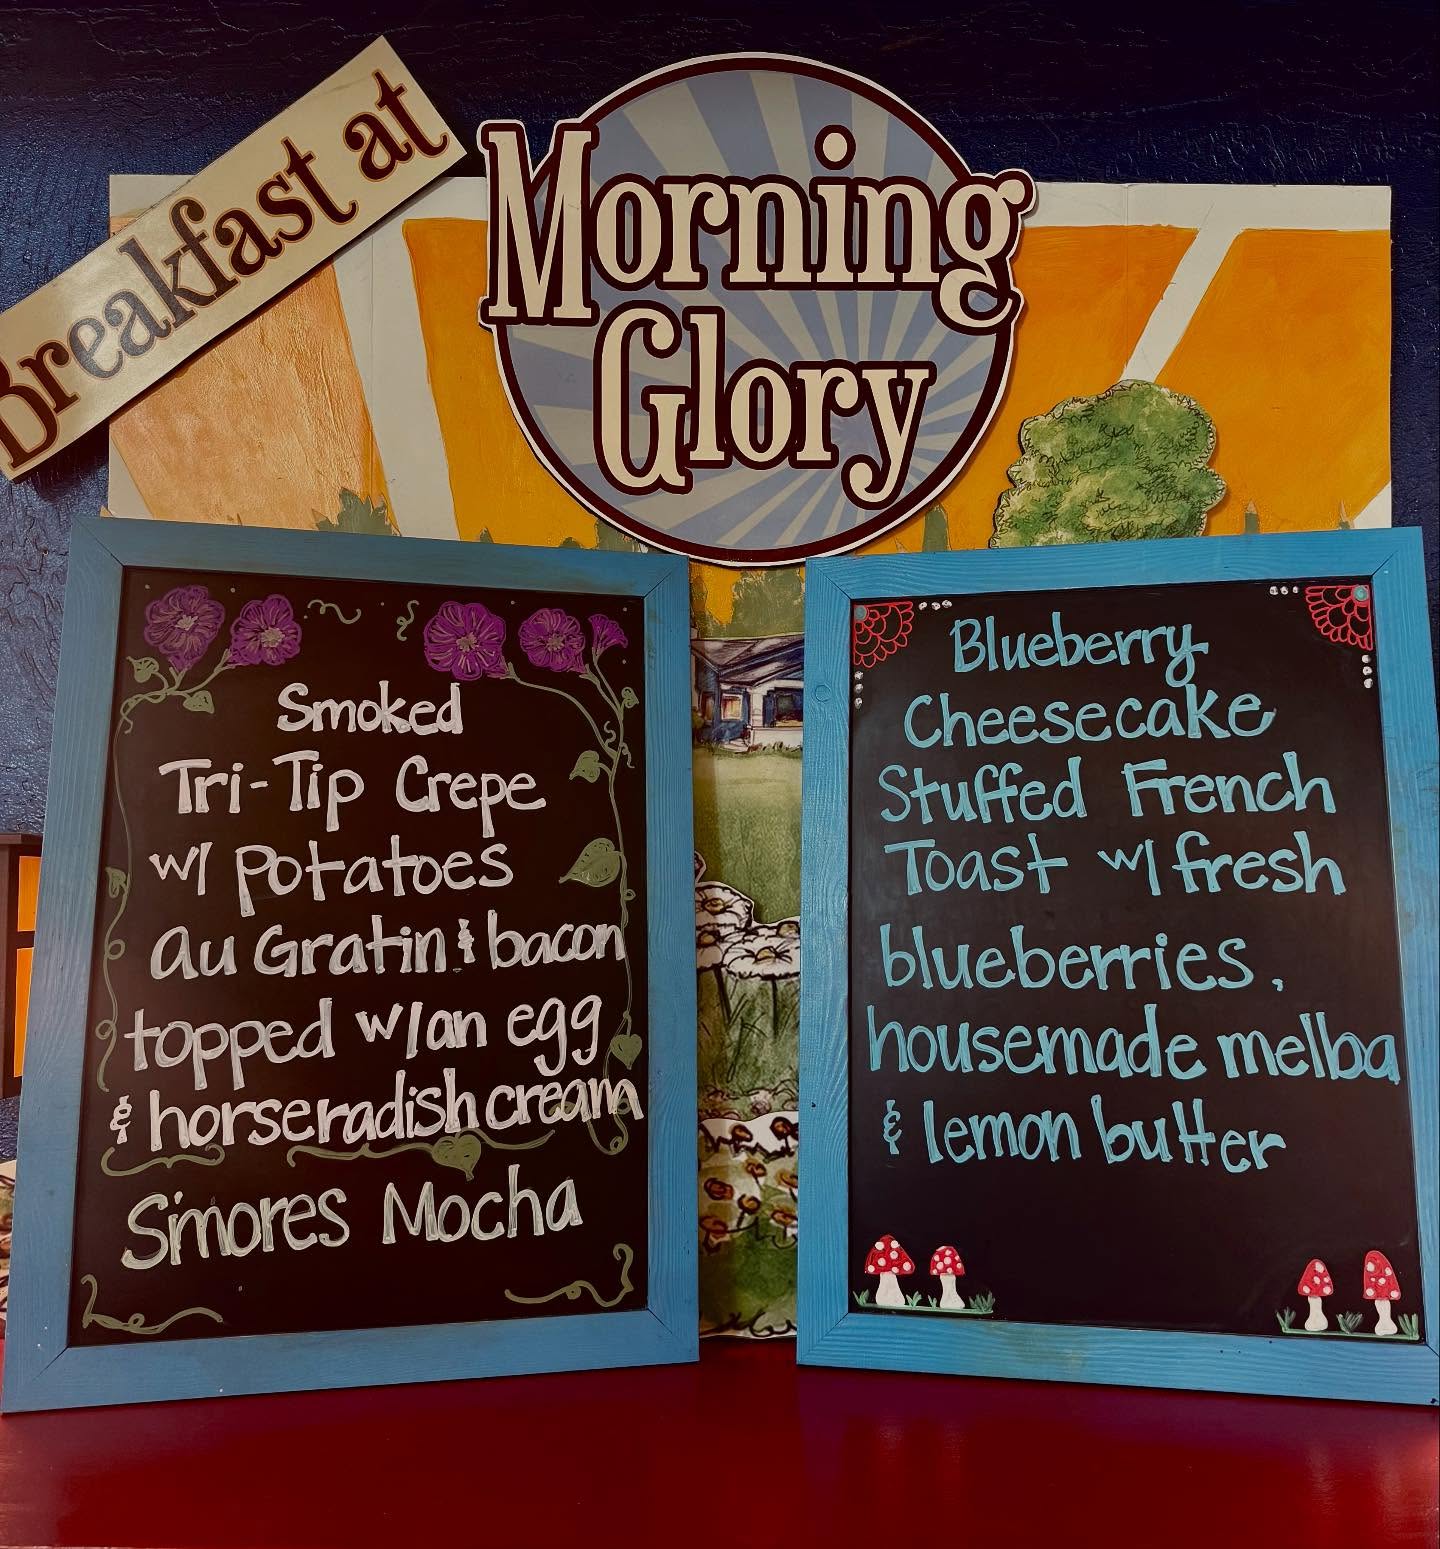 Breakfast at
Morning
Glory
Smoked
Tri-Tip Crepe
w/ potatoes
au Gratin & bacon
topped w/an egg
& horseradish cream
S'mores Mocha
Blueberry
Cheesecake
Stuffed French
Toast w/ fresh
blueberries,
housemade melba
& lemon butter